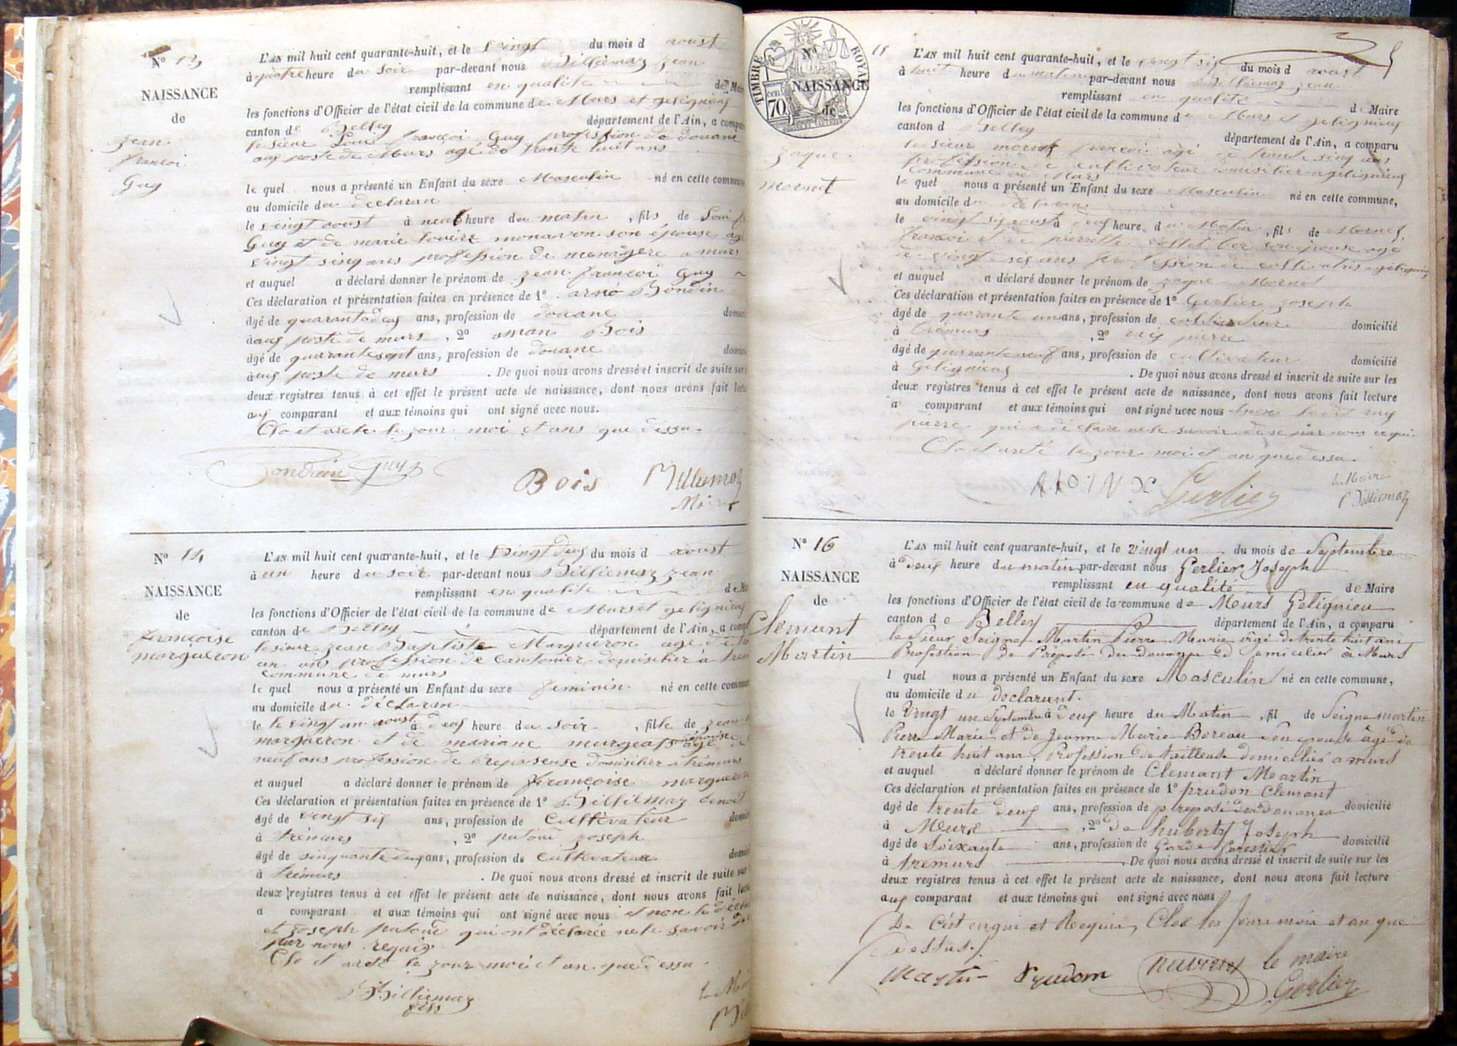 N° 13
NAISSANCE
de
jean
françoi
Guy
L'AN mil huit cent quarante-huit, et le vingt du mois d aoust
à heure du soir par-devant nous Billiemaz jean
remplissant en qualité de Maire
les fonctions d'Officier de l'état civil de la commune de Murs et geligneux
canton de Belley département de l'Ain, a comparu
le sieur Loui françoi Guy profession de douane
au poste de Murs agé de trante huit ans
le quel nous a présenté un Enfant du sexe Masculin né en cette commune
au domicile du declaran
le vingt aoust à neuf heure du matin, fils de Loui
Guy et de marie louise monavon son épouse agé
vingt sinq ans profession de menagère a murs
et auquel a déclaré donner le prénom de jean françoi Guy
Ces déclaration et présentation faites en présence de 1° Bondin
âgé de quarante deux ans, profession de douane
à au poste de murs, 2° Bois
âgé de quarante sept ans, profession de douane
à au poste de murs. De quoi nous avons dressé et inscrit de suite sur
deux registres tenus à cet effet le présent acte de naissance, dont nous avons fait lecture
au comparant et aux témoins qui ont signé avec nous.
Clo et areté le jour moi et ans que dessu.
Guy Bois Billiemaz
N° 14
NAISSANCE
de
françoise
margueron
L'AN mil huit cent quarante-huit, et le vingt deux du mois d aoust
à un heure du soir par-devant nous Billiemaz jean
remplissant en qualité
les fonctions d'Officier de l'état civil de la commune de Murs et geligneux
canton de Belley département de l'Ain, a comparu
le sieur jean Baptiste Margueron agé
un ans profession de cantonier domicilier à
commune de murs
le quel nous a présenté un Enfant du sexe feminin né en cette commune
au domicile du déclaran
le vingt un aoust à deux heure du soir, fille de jean
margueron et de mariane murgeas épouse agé
neuf ans profession de domicilier a trémurs
et auquel a déclaré donner le prénom de françoise margueron
Ces déclaration et présentation faites en présence de 1° Billiemaz
âgé de vingt six ans, profession de Cultivateur
à trémurs, 2° joseph
âgé de sinquante ans, profession de cultivateur
à trémurs. De quoi nous avons dressé et inscrit de suite sur
deux registres tenus à cet effet le présent acte de naissance, dont nous avons fait lecture
a comparant et aux témoins qui ont signé avec nous et non le
et joseph qui ont déclarée ne le savoir
par nous requis
Clo et areté le jour moi et an que dessu
Billiemaz
fils
15
TIMBRE ROYAL
70
N°
NAISSANCE
de
jaque
Mornet
L'AN mil huit cent quarante-huit, et le vingt six du mois d aoust
à huit heure du matin par-devant nous Billiemaz jean
remplissant en qualité de Maire
les fonctions d'Officier de l'état civil de la commune de Murs et geligneux
canton d Belley département de l'Ain, a comparu
le sieur mornet françoi agé de trante sinq ans
profession de cultivateur domicilier a geligneux
commune de Murs
le quel nous a présenté un Enfant du sexe Masculin né en cette commune,
au domicile du declaran
le vingt six aoust à deux heure du Matin, fils de Mornet
françoi et de pierrette son épouse agé
de vingt six ans profession de cultivatrice a geligneux
et auquel a déclaré donner le prénom de jaque Mornet
Ces déclaration et présentation faites en présence de 1° Gerlier joseph
âgé de quarante un ans, profession de cultivateur domicilié
à trémurs, 2° pierre
âgé de quarante neuf ans, profession de cultivateur domicilié
à Geligneux. De quoi nous avons dressé et inscrit de suite sur les
deux registres tenus à cet effet le présent acte de naissance, dont nous avons fait lecture
a comparant et aux témoins qui ont signé avec nous
pierre qui a déclaré ne le savoir de se par nous requi
Clo et areté le jour moi et an que dessu
Gerlier le Maire
Billiemaz
N° 16
NAISSANCE
de
Clemant
Martin
L'AN mil huit cent quarante-huit, et le vingt un du mois de Septembre
à deux heure du matin par-devant nous Gerlier Joseph
remplissant en qualité de Maire
les fonctions d'Officier de l'état civil de la commune de Meurs Geligneu
canton de Belley département de l'Ain, a comparu
le sieur Seigne Martin Pierre Marie agé de trente huit ans
Profession de Préposé des douanne domicilier à Murs
l quel nous a présenté un Enfant du sexe Masculin né en cette commune,
au domicile du declarant.
le vingt un Septembre à deux heure du Matin, fil de Seigne martin
Pierre Marie et de Jeanne Marie Bereau son épouse âgé de
trente huit ans, Profession de tailleuse domiciliés a murs
et auquel a déclaré donner le prénom de Clemant Martin
Ces déclaration et présentation faites en présence de 1° prudon Clemant
âgé de trente deux ans, profession de préposé des douanes domicilié
à Meurs, 2° De hubert Joseph
âgé de Soixante ans, profession de Garde Forestier domicilié
à tremurs. De quoi nous avons dressé et inscrit de suite sur les
deux registres tenus à cet effet le présent acte de naissance, dont nous avons fait lecture
aux comparant et aux témoins qui ont signé avec nous
De Cest enqui et Requis Clos les Jour mois et an que
dessus.
Martin Prudom le maire
Gerlier